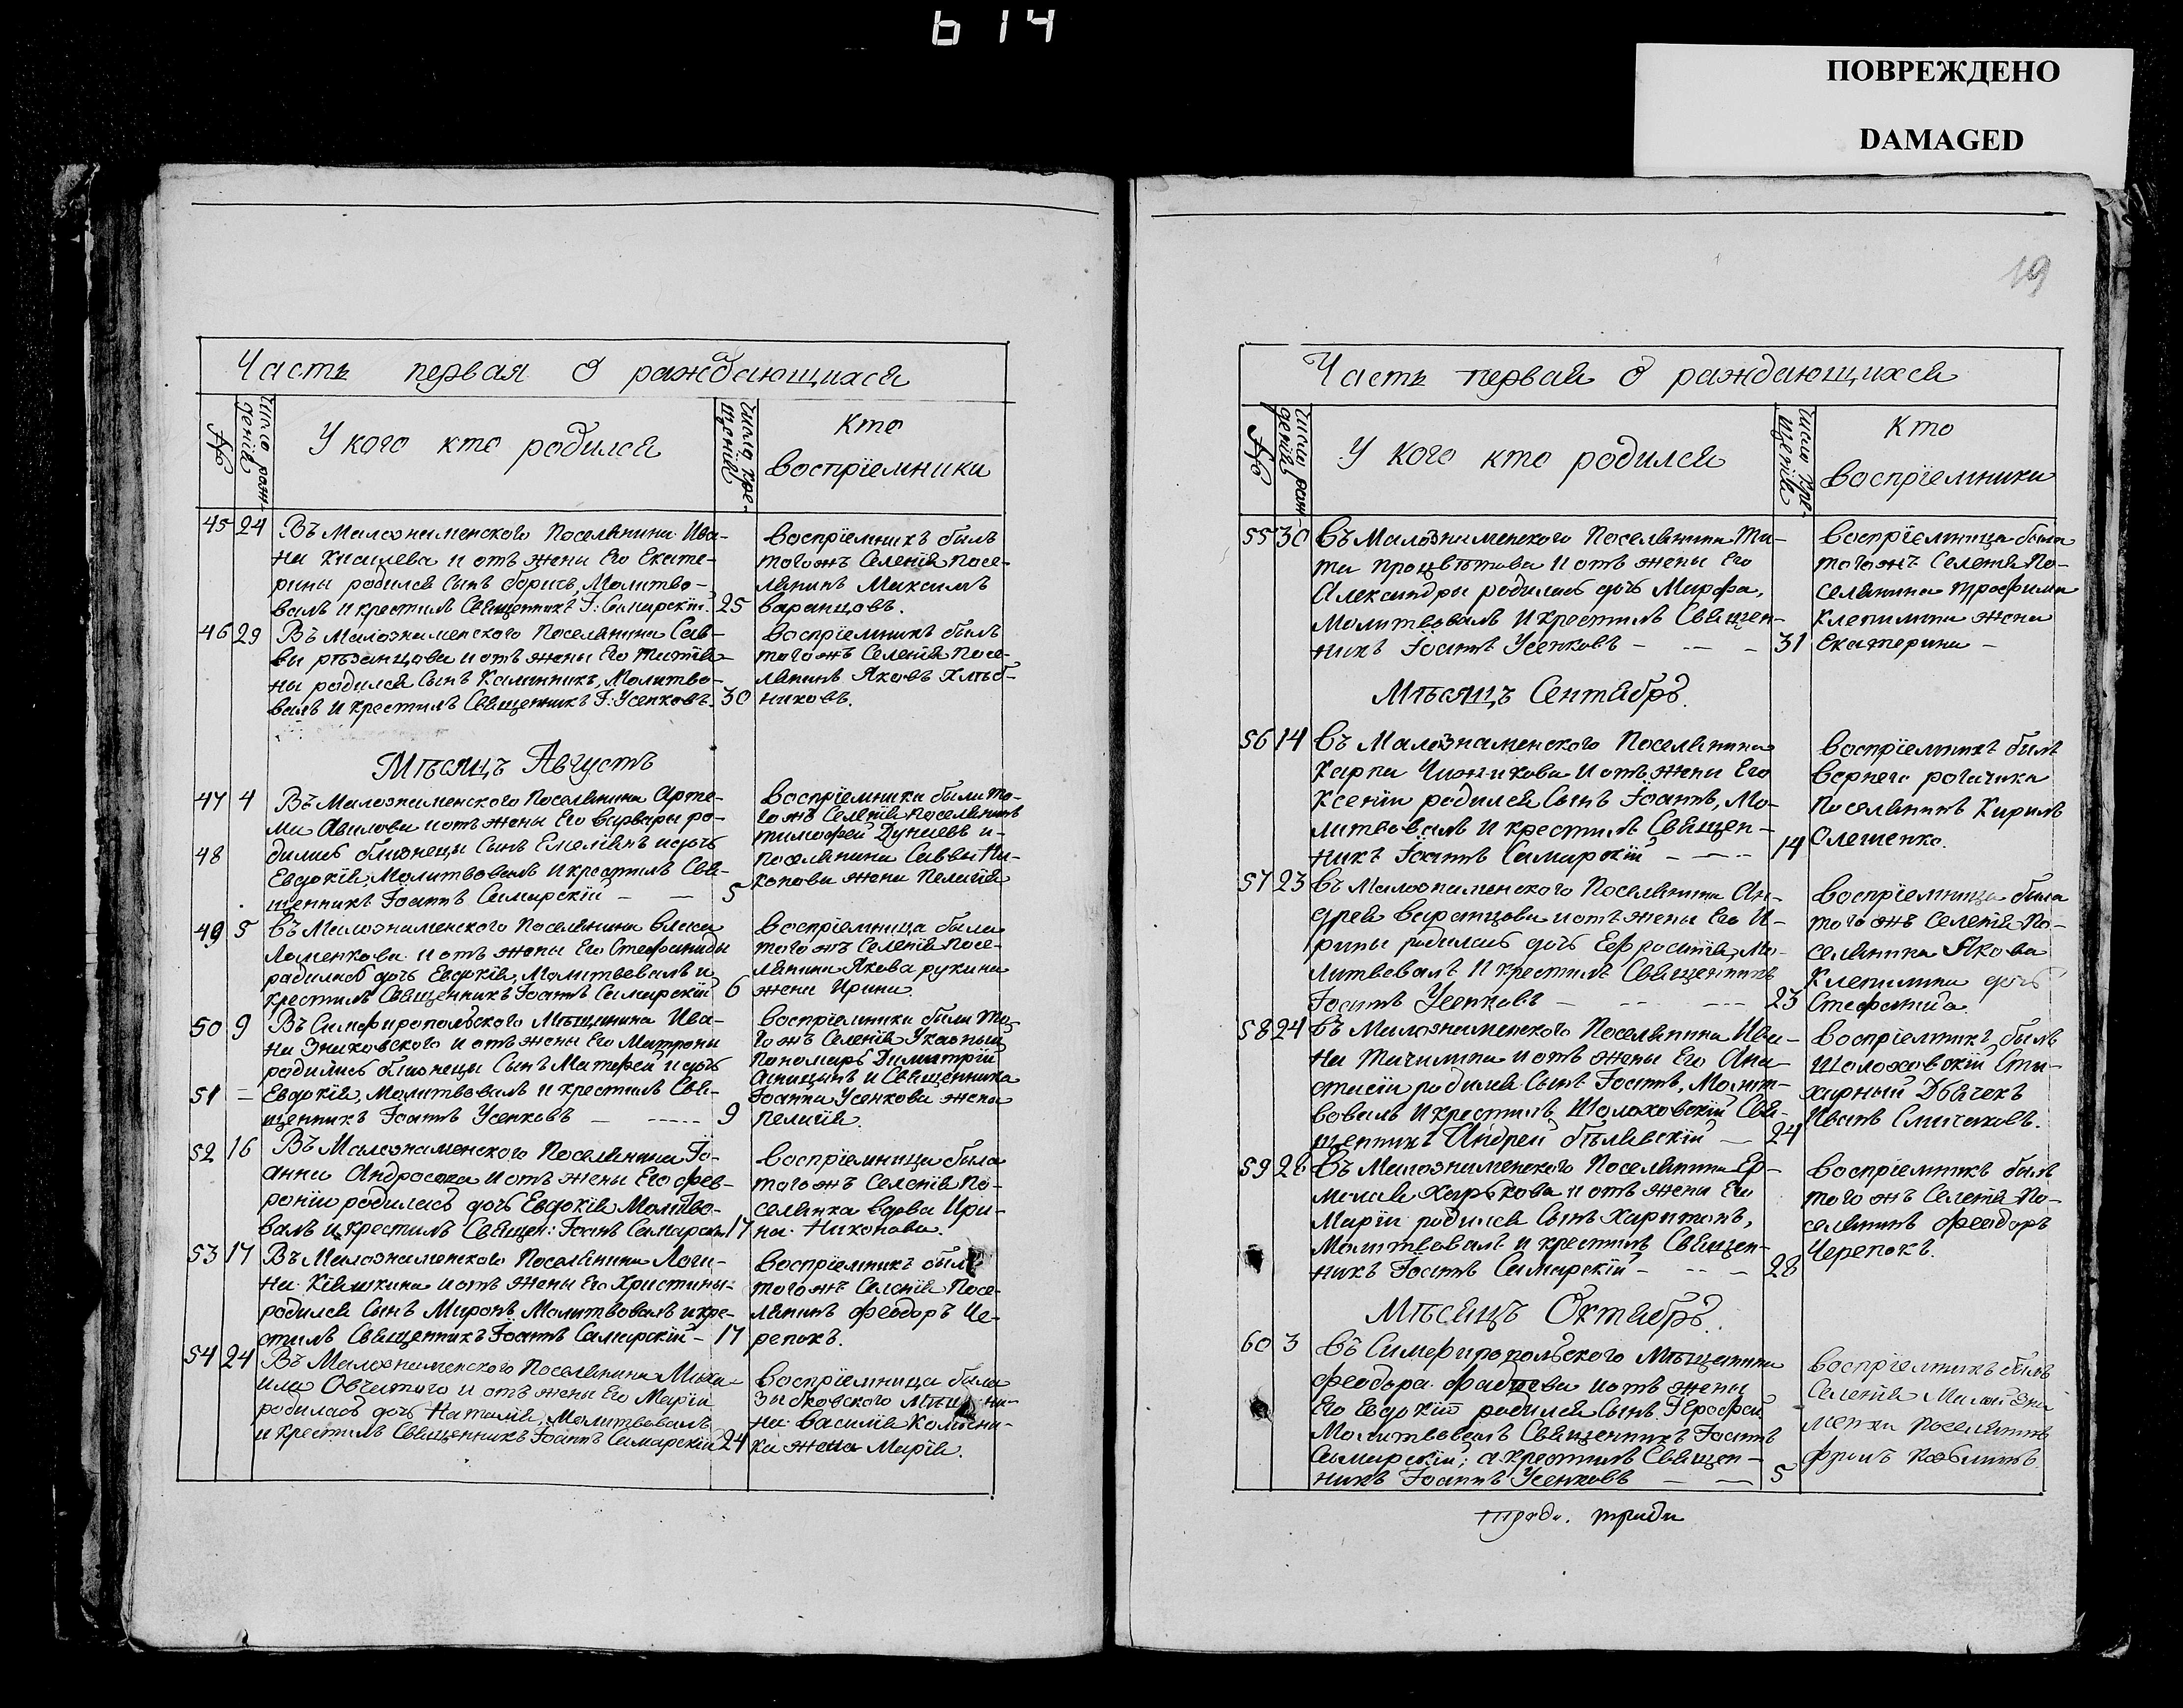 614
ПОВРЕЖДЕНО
DAMAGED
19
Часть первая о раждающихся
№
Число раж-
денія
У кого кто родился
Число кре-
щенія
Кто
воспріемники
45 24 Въ Малознаменского Поселянина Ива-
на Киселева и отъ жены Его Екате-
рины родился Сынъ борисъ, Молитво-
валъ и крестилъ Священникъ І: Самарскій. 25
воспріемникъ былъ
того жъ Селенія посе-
лянинъ Максимъ
варанцовъ.
46 29 Въ Малознаменского Поселянина Сав-
вы рѣзанцова и отъ жены Его татія-
ны родился Сынъ Калинникъ, Молитво-
валъ и крестилъ Священникъ І: Усенковъ. 30
воспріемникъ былъ
того жъ Селенія Посе-
лянинъ Яковъ Хлѣб-
никовъ.
Мѣсяцъ Августъ
47 4 Въ Малознаменского Поселянина Арте-
ма Авилова и отъ жены Его варвары ро-
48 дились близнецы Сынъ Емелянъ и дочь
Евдокія, Молитвовалъ и крестилъ Свя-
щенникъ Іоаннъ Самарскій 5
воспріемники были то-
го жъ Селенія поселянинъ
тимофей Дунаевъ и
поселянина Саввы Ни-
конова жена Пелагія
49 5 въ Малознаменского Поселянина власа
Ломенкова и отъ жены Его Стефаниды
радилась дочь Евдокія, Молитвовалъ и
крестилъ Священникъ Іоаннъ Самарскій 6
воспріемница была
того жъ Селенія посе-
лянина Якова рукина
жена Ирина.
50 9 Въ Симферопольского Мѣщанина Ива-
на Зниковского и отъ жены Его Матроны
родились близнецы Сынъ Матфей и дочь
51 – Евдокія, Молитвовалъ и крестилъ Свя-
щенникъ Іоаннъ Усенковъ 9
воспріемники были то-
го жъ Селенія Указный
пономарь Димитрій
и Священника
Іоанна Усенкова жена
пелагія.
52 16 Въ Малознаменского Поселянина Іо-
анна Андросова и отъ жены Его фев-
роніи родилась дочь Евдокія Молитво-
валъ и крестилъ Священ: Іоаннъ Самарскій 17
воспріемница была
того жъ Селенія По-
селянка вдова Ири-
на Никонова.
53 17 Въ Малознаменского Поселянина Логи-
на Кіяшкина и отъ жены Его Христины
родился Сынъ Миронъ Молитвовалъ и кре-
стилъ Священникъ Іоаннъ Самарскій – 17
воспріемникъ былъ
того жъ Селенія Посе-
лянинъ феодоръ Че-
репокъ.
54 24 Въ Малознаменского Поселянина Миха-
ила Овчатого и отъ жены Его Маріи
родилась дочь Наталія, Молитвовалъ
и крестилъ Священникъ Іоаннъ Самарскій 24
воспріемница была
Зыбковского мѣщани-
на василія Коляни-
ка жена Марія.
Часть первая о раждающихся
№
Число раж-
денія
У кого кто родился
Число кре-
щенія
Кто
воспріемники
55 30 въ Малознаменского Поселянина Ти-
та процвѣтова и отъ жены Его
Александры родилась дочь Марфа,
Молитвовалъ и крестилъ Священ-
никъ Іоаннъ Усенковъ – – – 31
воспріемница была
того жъ Селенія По-
селянина трофима
Клепинина жена
Екатерина –
Мѣсяцъ Сентябрь.
56 14 въ Малознаменского Поселянина
Карпа Чижикова и отъ жены Его
Ксеніи родился Сынъ Іоаннъ, Мо-
литвовалъ и крестилъ Священ-
никъ Іоаннъ Самарскій – – – 14
воспріемникъ былъ
верняго рогачика
Поселянинъ Кирилъ
Олешенко.
57 23 въ Малознаменского Поселянина Ан-
дрея варанцова и отъ жены Его И-
рины родилась дочь Ефросинія, Мо-
литвовалъ и крестилъ Священникъ
Іоаннъ Усенковъ – – – 23
воспріемница была
того жъ Селенія По-
селянина Якова
Клепинина дочь
Стефанида.
58 24 въ Малознаменского Поселянина Ива-
на Тачилина и отъ жены Его Ана-
стасіи родился Сынъ Іоаннъ, Молит-
вовалъ и крестилъ Шолоховскій Свя-
щенникъ Андрей бѣлявскій – 24
воспріемникъ былъ
Шолоховскій Сти-
харный Дьячекъ
Иванъ
59 26 въ Малознаменского Поселянина Ер-
молая Харькова и отъ жены Его
Маріи родился Сынъ Харитонъ,
Молитвовалъ и крестилъ Священ-
никъ Іоаннъ Самарскій – – – 28
воспріемникъ былъ
того жъ Селенія По-
селянинъ феодоръ
Черепокъ.
Мѣсяцъ Октябрь.
60 3 въ Симферопольского Мѣщанина
феодора фадѣева и отъ жены
Его Евдокіи родился Сынъ Іерофей
Молитвовалъ Священникъ Іоаннъ
Самарскій; а крестилъ Священ-
никъ Іоаннъ Усенковъ – – 5
воспріемникъ былъ
Селенія Малой Зна
менки поселянинъ